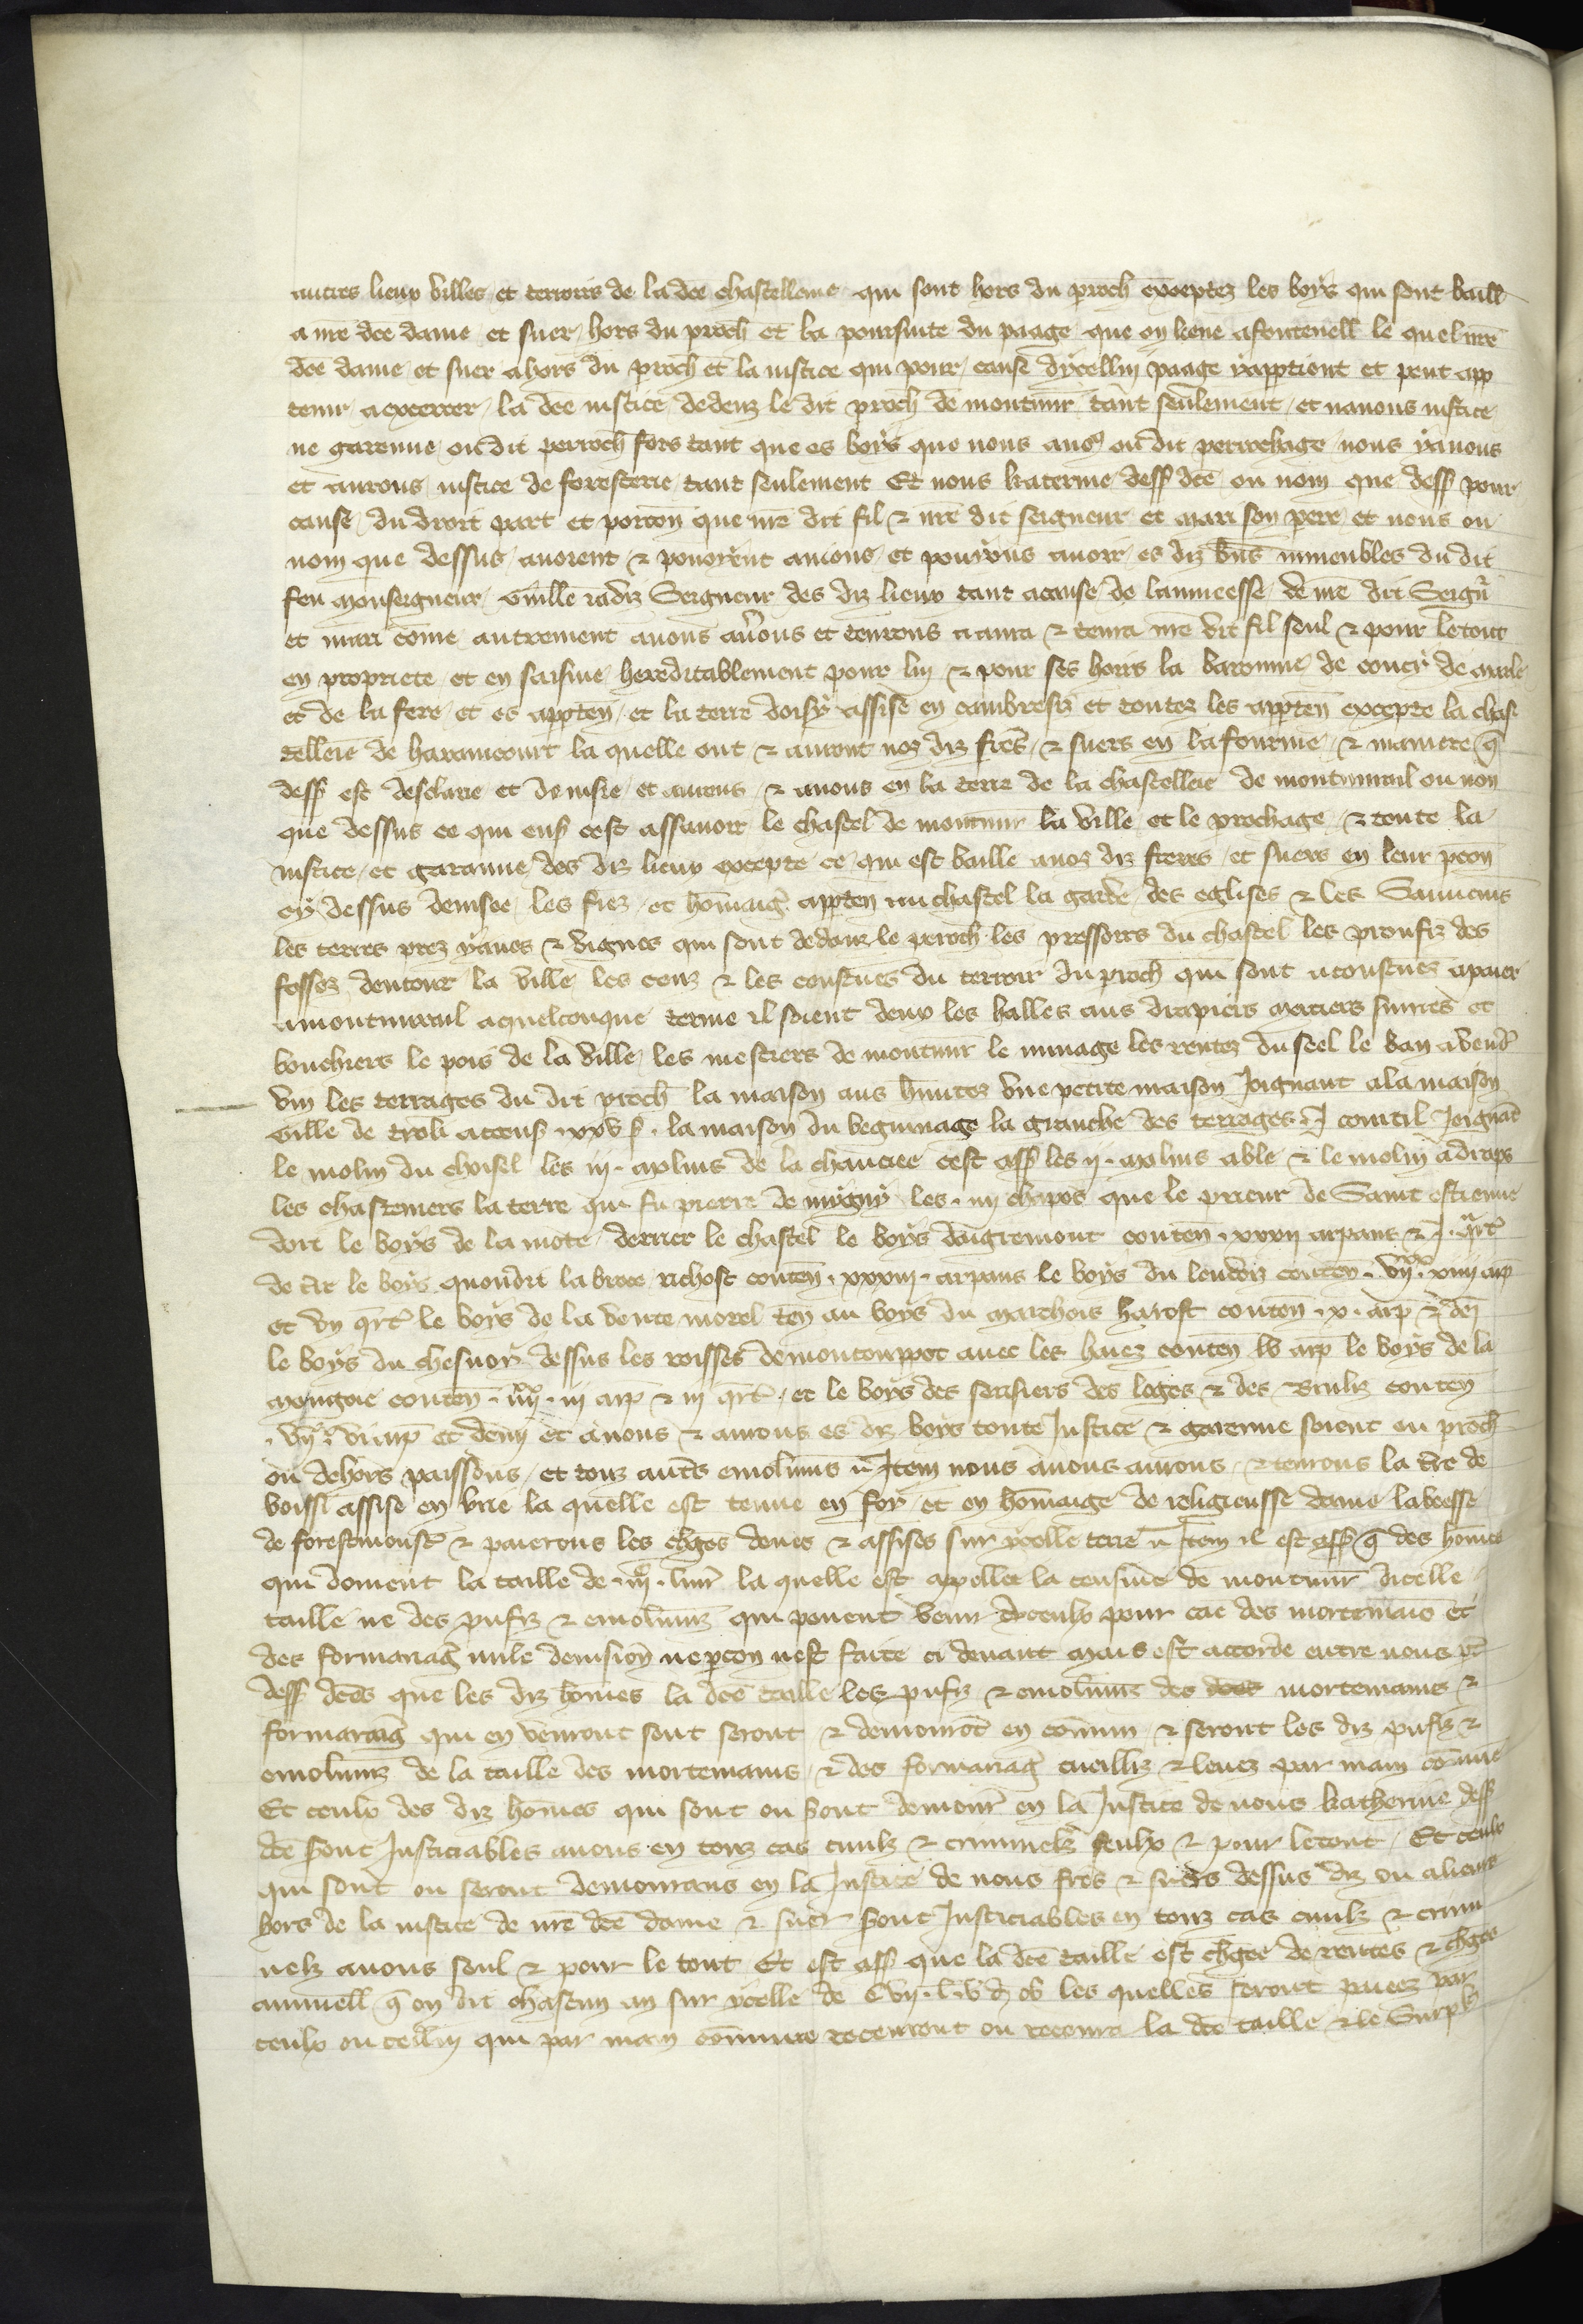 autres lieux villes et terroirs de la dce chastellenie qui sont hors du proch exceptez les boys qui sont baill
a nre dce dame et suer hors du proch et la poursuite du paage que on lieue a fontenell le quel nre
dce dame et suer a hors du proch et la iustice qui pour cause dycellui paage y apptient et peut app
tenir a excercer la dce iustice dedenz le dit proch de montmir tant seulement et nauons iustice
ne garenne ou dit perroch fors tant que es boys que nous auos ou dit perrochage nous y auons
et aurons iustice de foresterie tant seulement Et nous katerine dess dce ou nom que dess pour
cause du droit part et porcon que nre dit fil & nre dit seigneur et mari son pere et nous ou
nom que dessus auoient & pouoyent auions et pouyons auoir es diz bns inmeubles du dit
feu monseigneur Guille iadiz Seigneur des diz lieux tant a cause de lainneesse de nre dit Seignr
et mari come autrement auons aurons et tenrons aura & tenra nre dit fil seul & pour le tout
en propriete et en saisine hereditablement pour lui & pour ses hoirs la baronnie de coucy de marle
et de la fere et es apptenn et la terre doisy assise en cambresiz et toutes les apptenn excepte la chas
tellerie de haraucourt la quelle ont & auront noz diz freres & suers en la fourme & maniere q
dess est desclarie et deuisie et aurons & auons en la terre de la chastellerie de montmirail ou non
que dessus ce qui ens cest assauoir le chastel de montmir la ville et le prochage & toute la
iustice et garanne des diz lieux excepte ce qui est baille a noz diz freres et suers en leur pcon
cy dessus deuisee les fiez et homaig apptenn au chastel la garde des eglises & les Sauuemens
les terres prez yaues & vignes qui sont dedanz le peroch les pressoirs du chastel les proufiz des
fossez dentour la ville les cens & les coustues du terroir du proch qui sont acoustues a paier
a montmirail a quelconque terme il soient deux les halles aus drapiers merciers suures et
bouchiers le pois de la ville les mestiers de montmir le minage les rentes du seel le ban a vendr
vin les terrages du dit proch la maison aus hunites vne petite maison Joignant a la maison
Gille de troli a ccens xxv s. la maison du beguinage la granche des terrages .J. courtil Joignat
le molin du choisel les iij molins de la chauciee cest ass les ij molins a ble & le molin a draps
les chasteniers la terre qui fu pierre de mygny les iiij chapos que le prieur de Saint estienne
doit le boys de la mote derrier le chastel le boys daigremont conten xxxij arpans & .J. qrt
de art le boys quondit la broce richost conten xxxiij arpans le boys du leudiz conten vijxx xiiij arp
et vn qrt le boys de la vente morel ten au boys du marchois harost conten x arp & dei
le boys du chesnoy dessus les roisses de montcoupot auec les haiez conten lv arp le boys de la
mongoie conten iiijxx iij arp & iij qrt et le boys des sersiers des loges & des Brulz conten
vijxx vi arp et demi et auons & aurons es diz boys toute Justice & garenne soient en proch
ou dehors paissons et touz autes emolumns Item nous auons aurons & tenrons la tre de
boissi assise en brie la quelle est tenue en foy et en homaige de religieusse dame labeesse
de forestmoust & paierons les chges deues & assises sur ycelle terre Item il est ass q des homes
qui doiuent la taille de iijc liur la quelle est apellee la censiue de montmir dicelle
taille ne des pufiz & emolumz qui peuent venir dyceulx pour cae des mortemais et
des formariag nule deuision ne pcon nest faite ci deuant mais est accorde entre nous pt
dess dces que les diz homes la dce taille les pufiz & emolumz des mortemains &
formariaig qui en venront sont seront & demourot en comun & seront les diz pufiz &
emolumz de la taille des mortemains & des formariag cueilliz & leuez par main comune
Et ceulx des diz homes qui sont ou sont demour en la Justice de nous katherine dess
dce sont Justiciables a nous en touz cas ciuilz & criminelz seulx & pour le tout Et ceulx
qui sont ou seront demourans en la Justice de nous fres & suers dessus diz ou alieurs
hors de la iustice de nre dce dame & suer sont Justiciables en touz cas ciuilz & crimi
nelz a nous seul & pour le tout Et est ass que la dce taille est chgee de rentes & chges
annuell q on dit chascun an sur ycelle de Cvij l. v d ob les quelles seront paiees par
ceulx ou cellui qui par main comune receuront ou receura la dce taille & le Surpl